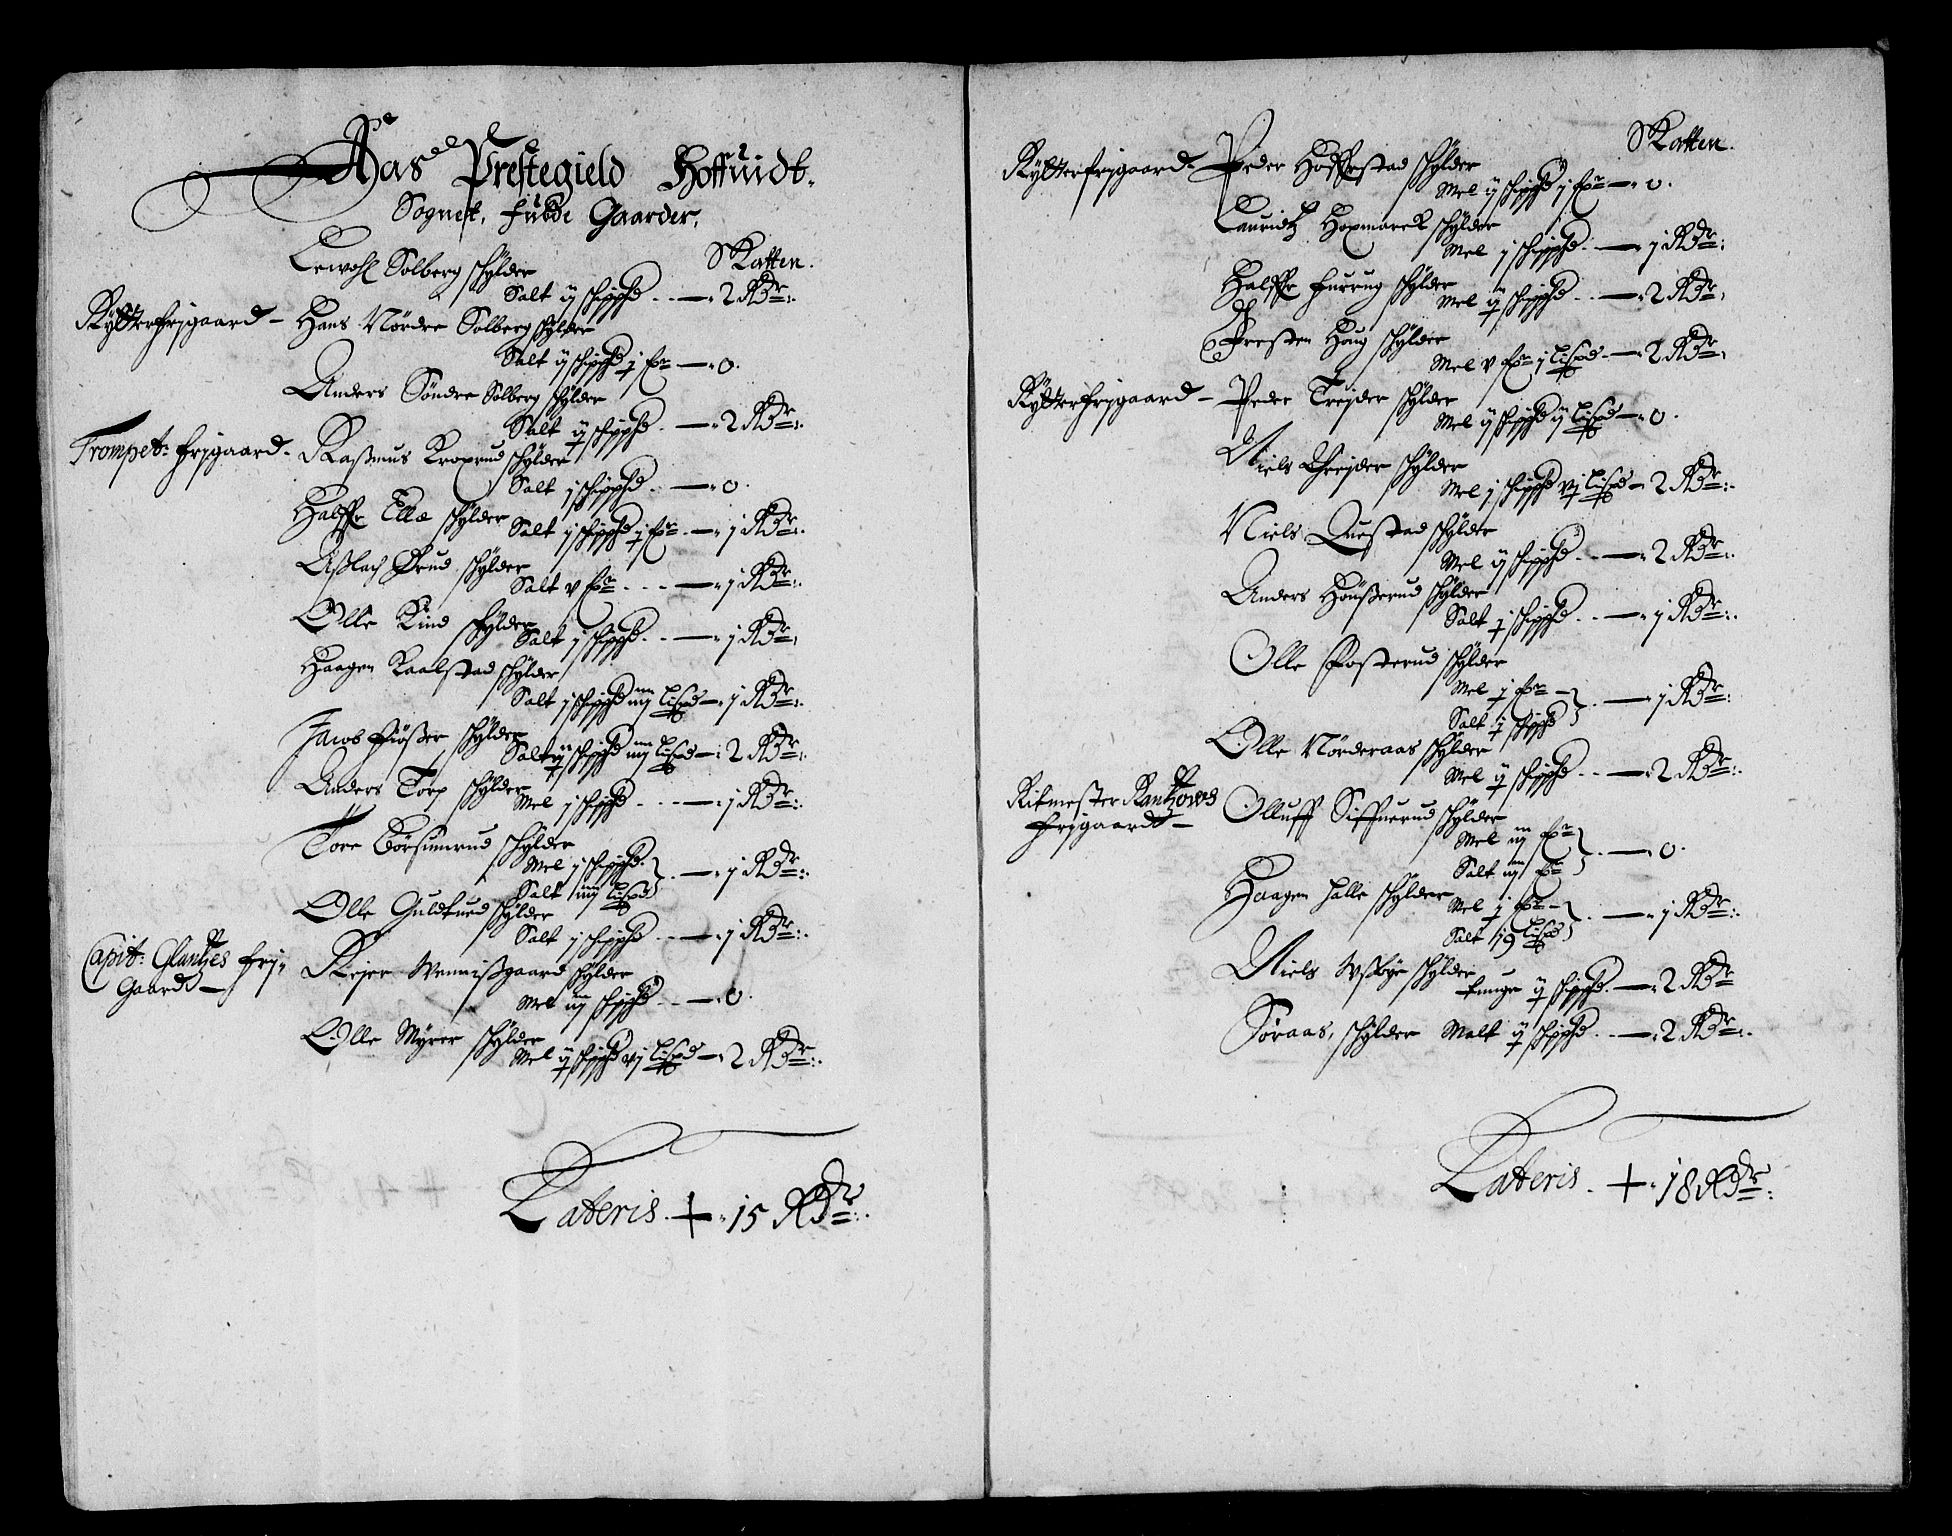 Aas Prestegield Hoffuidt.
Sognet, fulde Gaarder,
Skatten.
Lewohl Solberg schylder
Salt ij schippd. — 2 Rdr:
Rytterfrijgaard — Hans Nordre Solberg schylder
Salt ij schippd j fr — 0.
Anders Söndre Solberg schylder
Salt ij schippd. — 2 Rdr:
Trompet: frijgaard. Rasmus Kroxrud schylder
Salt j schippd. — 0.
Halffr Ellæ schylder
Salt j schippd j fr — j Rdr:
Asslach Ørud schylder
Salt v fr — j Rdr:
Olle Kind schylder
Salt j schippd. — j Rdr:
Haagen Kaalstad schylder
Salt j schippd iiij Lispd — j Rdr:
Jacob fiösser schylder
Salt ij schippd iiij Lispd — 2 Rdr:
Anders Torp schylder
Mel j schippd. — j Rdr:
Tore Börsumrud schylder
Mel j schippd.
Salt iiij Lispd — j Rdr:
Olle Guldrued schylder
Salt j schippd. — j Rdr:
Capit: Glantzes frij-
Gaard — Reier Wennissgaard schylder
Mel iij schippd. — 0.
Olle Myrer schylder
Mel ij schippd vj Lispd — 2 Rdr:
Lateris. — 15 Rdr:
Skatten.
Rytterfrijgaard — Peder Hoffstad schylder
Mel ij schippd j fr — 0.
Lauridtz Hoxmarck schylder
Mel j schippd. — j Rdr:
Halffr Furrug schylder
Mel ij schippd. — 2 Rdr:
Presten Haug schylder
Mel v fr j Lispd — 2 Rdr:
Rytterfrijgaard — Peder Treider schylder
Mel ij schippd ij Lispd — 0.
Niels Threider schylder
Mel j schippd vj Lispd — 2 Rdr:
Niels Questad schylder
Mel ij schippd. — 2 Rdr:
Anders Houserud schylder
Salt j schippd. — j Rdr:
Olle Fosterud schylder
Mel j fr —
Salt j schippd — j Rdr:
Olle Nörderaas schylder
Mel ij schippd. — 2 Rdr:
Ritmester Rantzows
frijgaard — Olluff Siffuerud schylder
Mel iij fr
Salt iij fr — 0.
Haagen Halle schylder
Mel j fr —
Salt 19 Lispd — j Rdr:
Niels Wssbye schylder
Punge ij schippd. — 2 Rdr
Söraas, schylder Malt ij schippd. — 2 Rdr:
Lateris. — 18 Rdr: